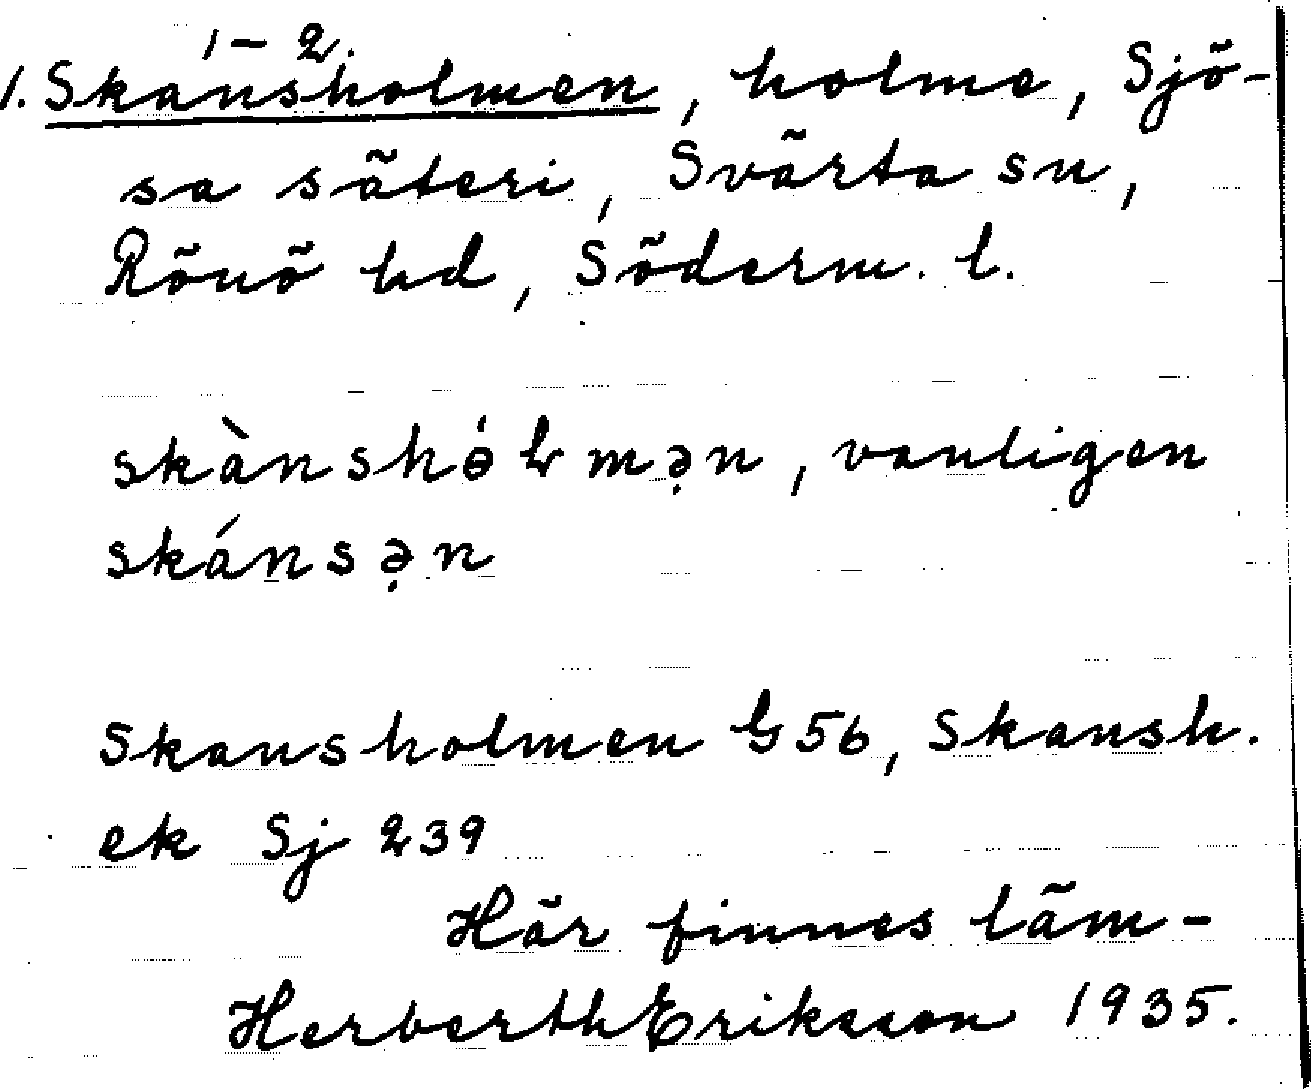 1-2.
1. Skansholmen, holme, Sjö-
sa säteri, Svärta sn,
Rönö hd, Söderm. l.
skànshə́ɫmə̣n, vanligen
skánsə̣n
Skansholmen G56, Skansh.
ek Sj 239
Här finnes läm-
Herberth Eriksson 1935.